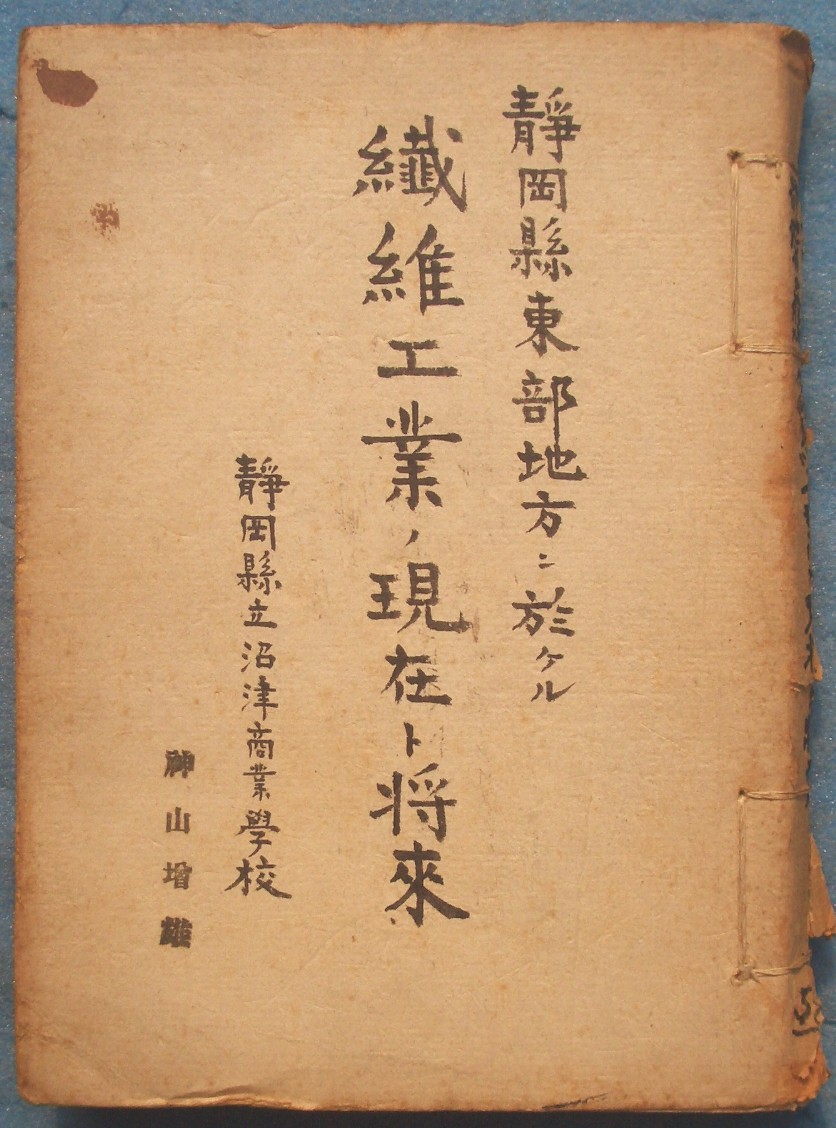 靜岡縣東部地方ニ於ケル
纖維工業ノ現在ト将來
靜岡縣立沼津商業學校
神山増雄